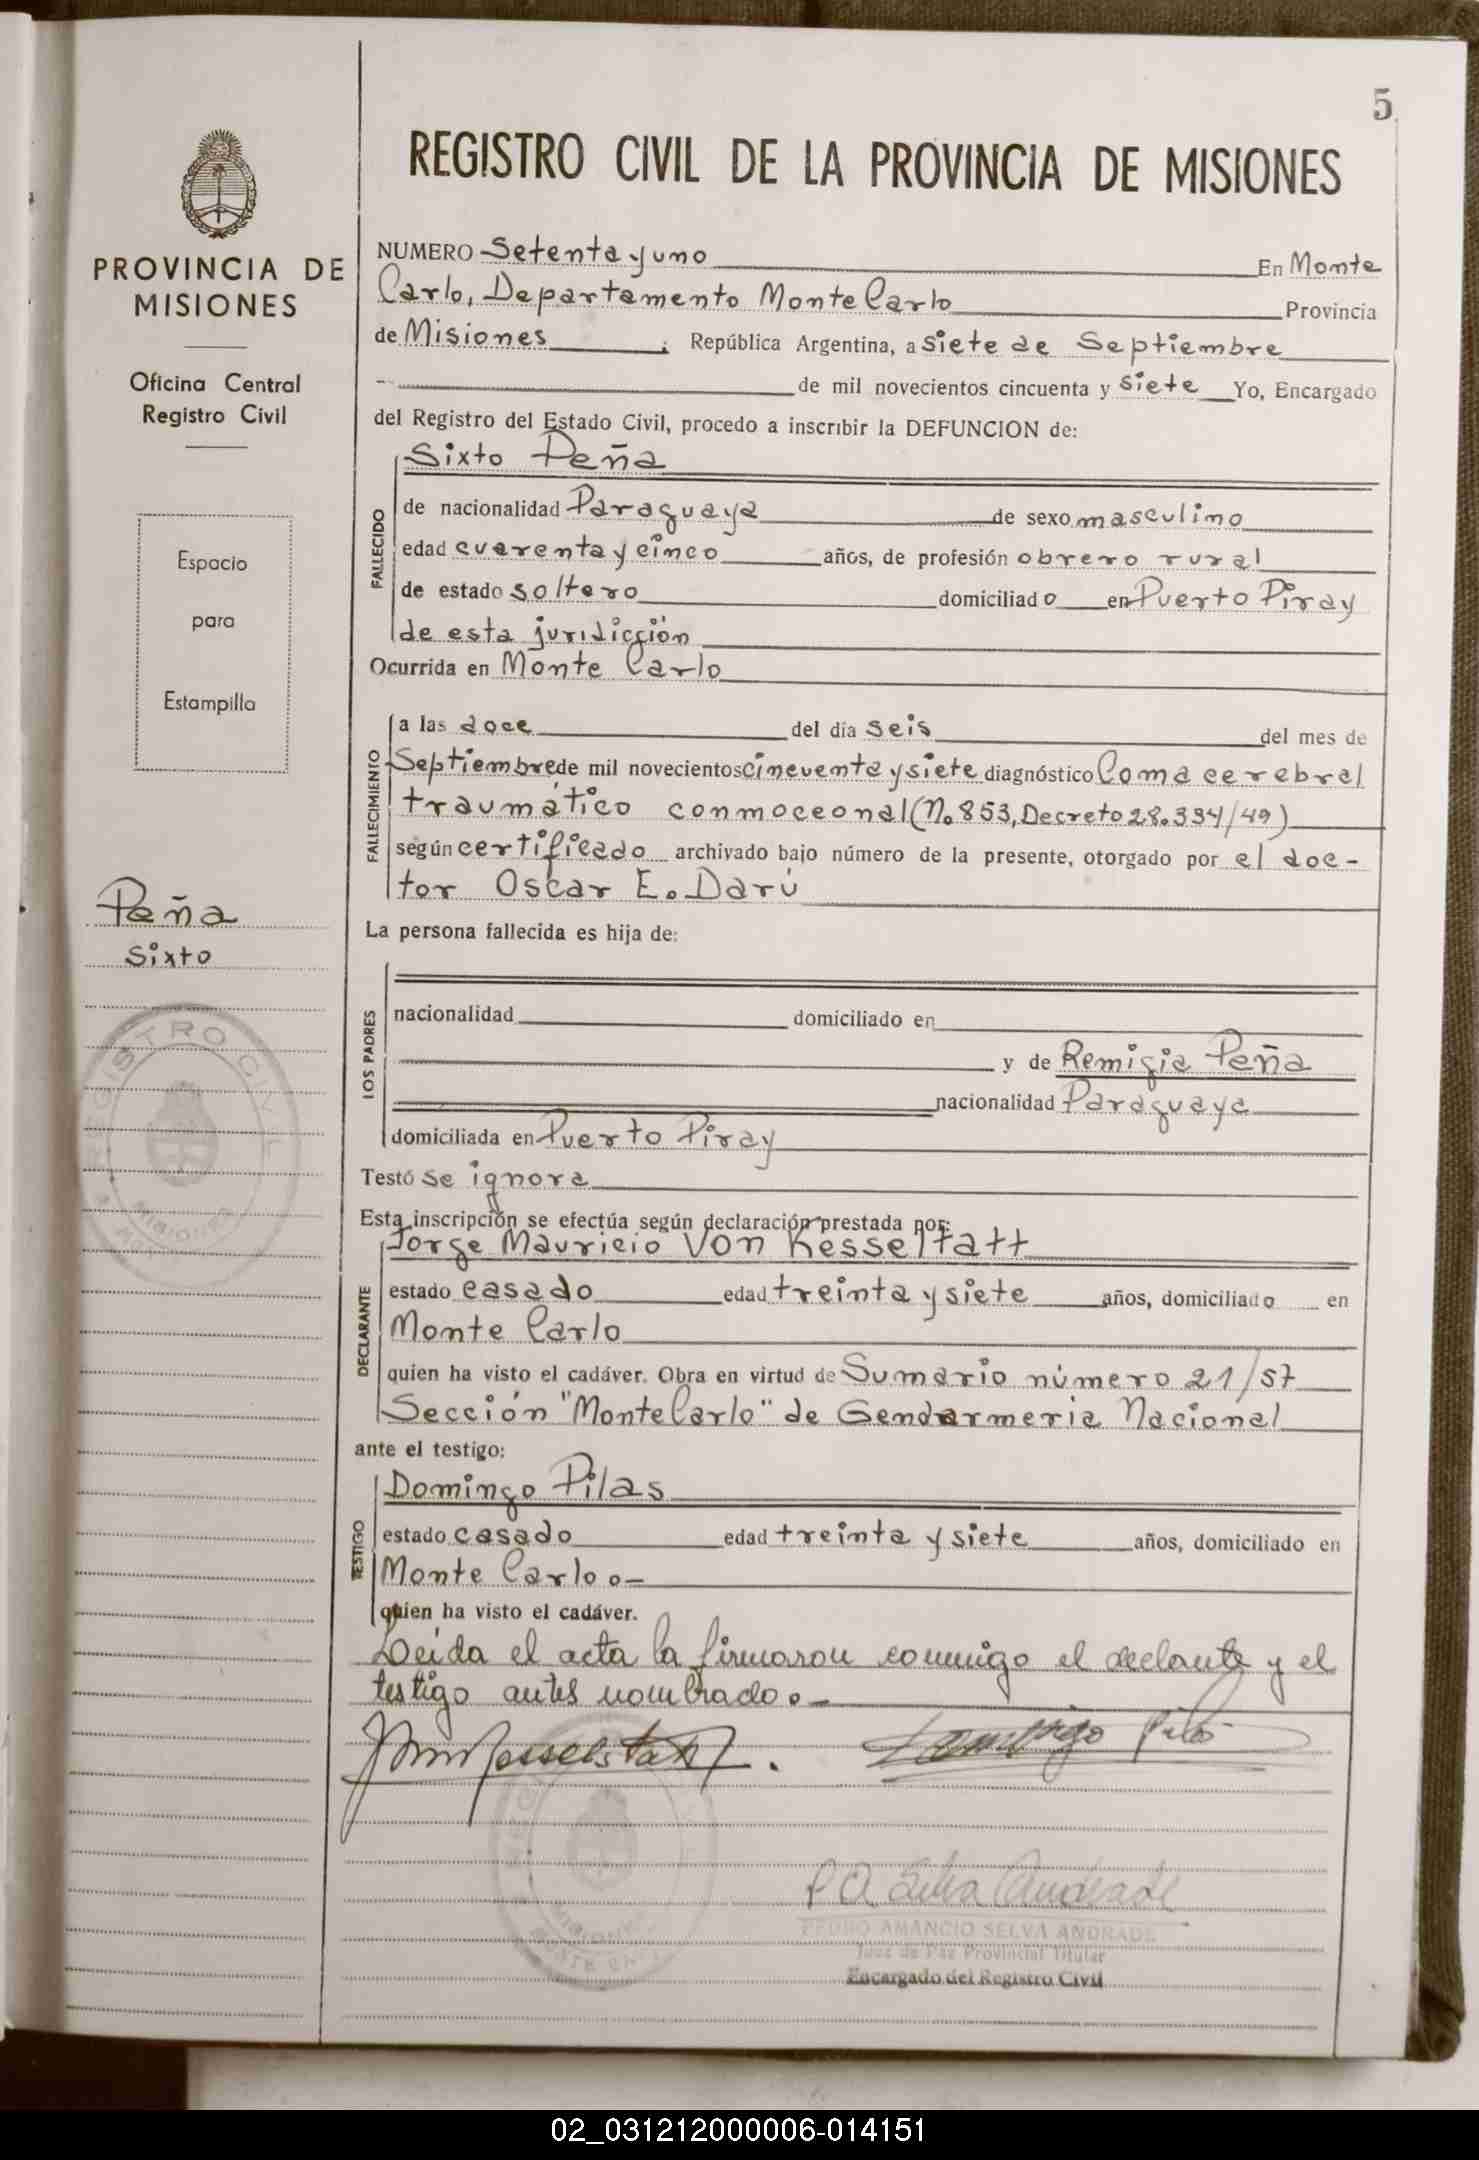 5
REGISTRO CIVIL DE LA PROVINCIA DE MISIONES
PROVINCIA DE
MISIONES
Oficina Central
Registro Civil
Espacio
para
Estampilla
Peña
Sixto
REGISTRO CIVIL
MISIONES
NUMERO Setenta y uno En Monte
Carlo, Departamento Monte Carlo Provincia
de Misiones República Argentina, a siete de Septiembre
de mil novecientos cincuenta y siete Yo, Encargado
del Registro del Estado Civil, procedo a inscribir la DEFUNCION de:
FALLECIDO
Sixto Peña
de nacionalidad Paraguaya de sexo masculino
edad cuarenta y cinco años, de profesión obrero rural
de estado soltero domiciliado en Puerto Piray
de esta juridicción
Ocurrida en Monte Carlo
FALLECIMIENTO
a las doce del día seis del mes de
Septiembre de mil novecientos cincuenta y siete diagnóstico Coma cerebral
traumático conmoceonal (No 853, Decreto 28.334/49)
según certificado archivado bajo número de la presente, otorgado por el doc-
tor Oscar E. Darú
La persona fallecida es hija de:
LOS PADRES
nacionalidad domiciliado en
y de Remigia Peña
nacionalidad Paraguaya
domiciliada en Puerto Piray
Testó se ignora
Esta inscripción se efectúa según declaración prestada por:
DECLARANTE
Jorge Mauricio Von Kesseltatt
estado casado edad treinta y siete años, domiciliado en
Monte Carlo
quien ha visto el cadáver. Obra en virtud de Sumario número 21/57
Sección "Monte Carlo" de Gendarmeria Nacional
ante el testigo:
TESTIGO
Domingo Pilas
estado casado edad treinta y siete años, domiciliado en
Monte Carlo.-
quien ha visto el cadáver.
Leída el acta la firmaron conmigo el declante y el
testigo antes nombrado.-
Domingo Pilas
P A Selva Andrade
PEDRO AMANCIO SELVA ANDRADE
Juez de Paz Provincial Titular
Encargado del Registro Civil
02_031212000006-014151